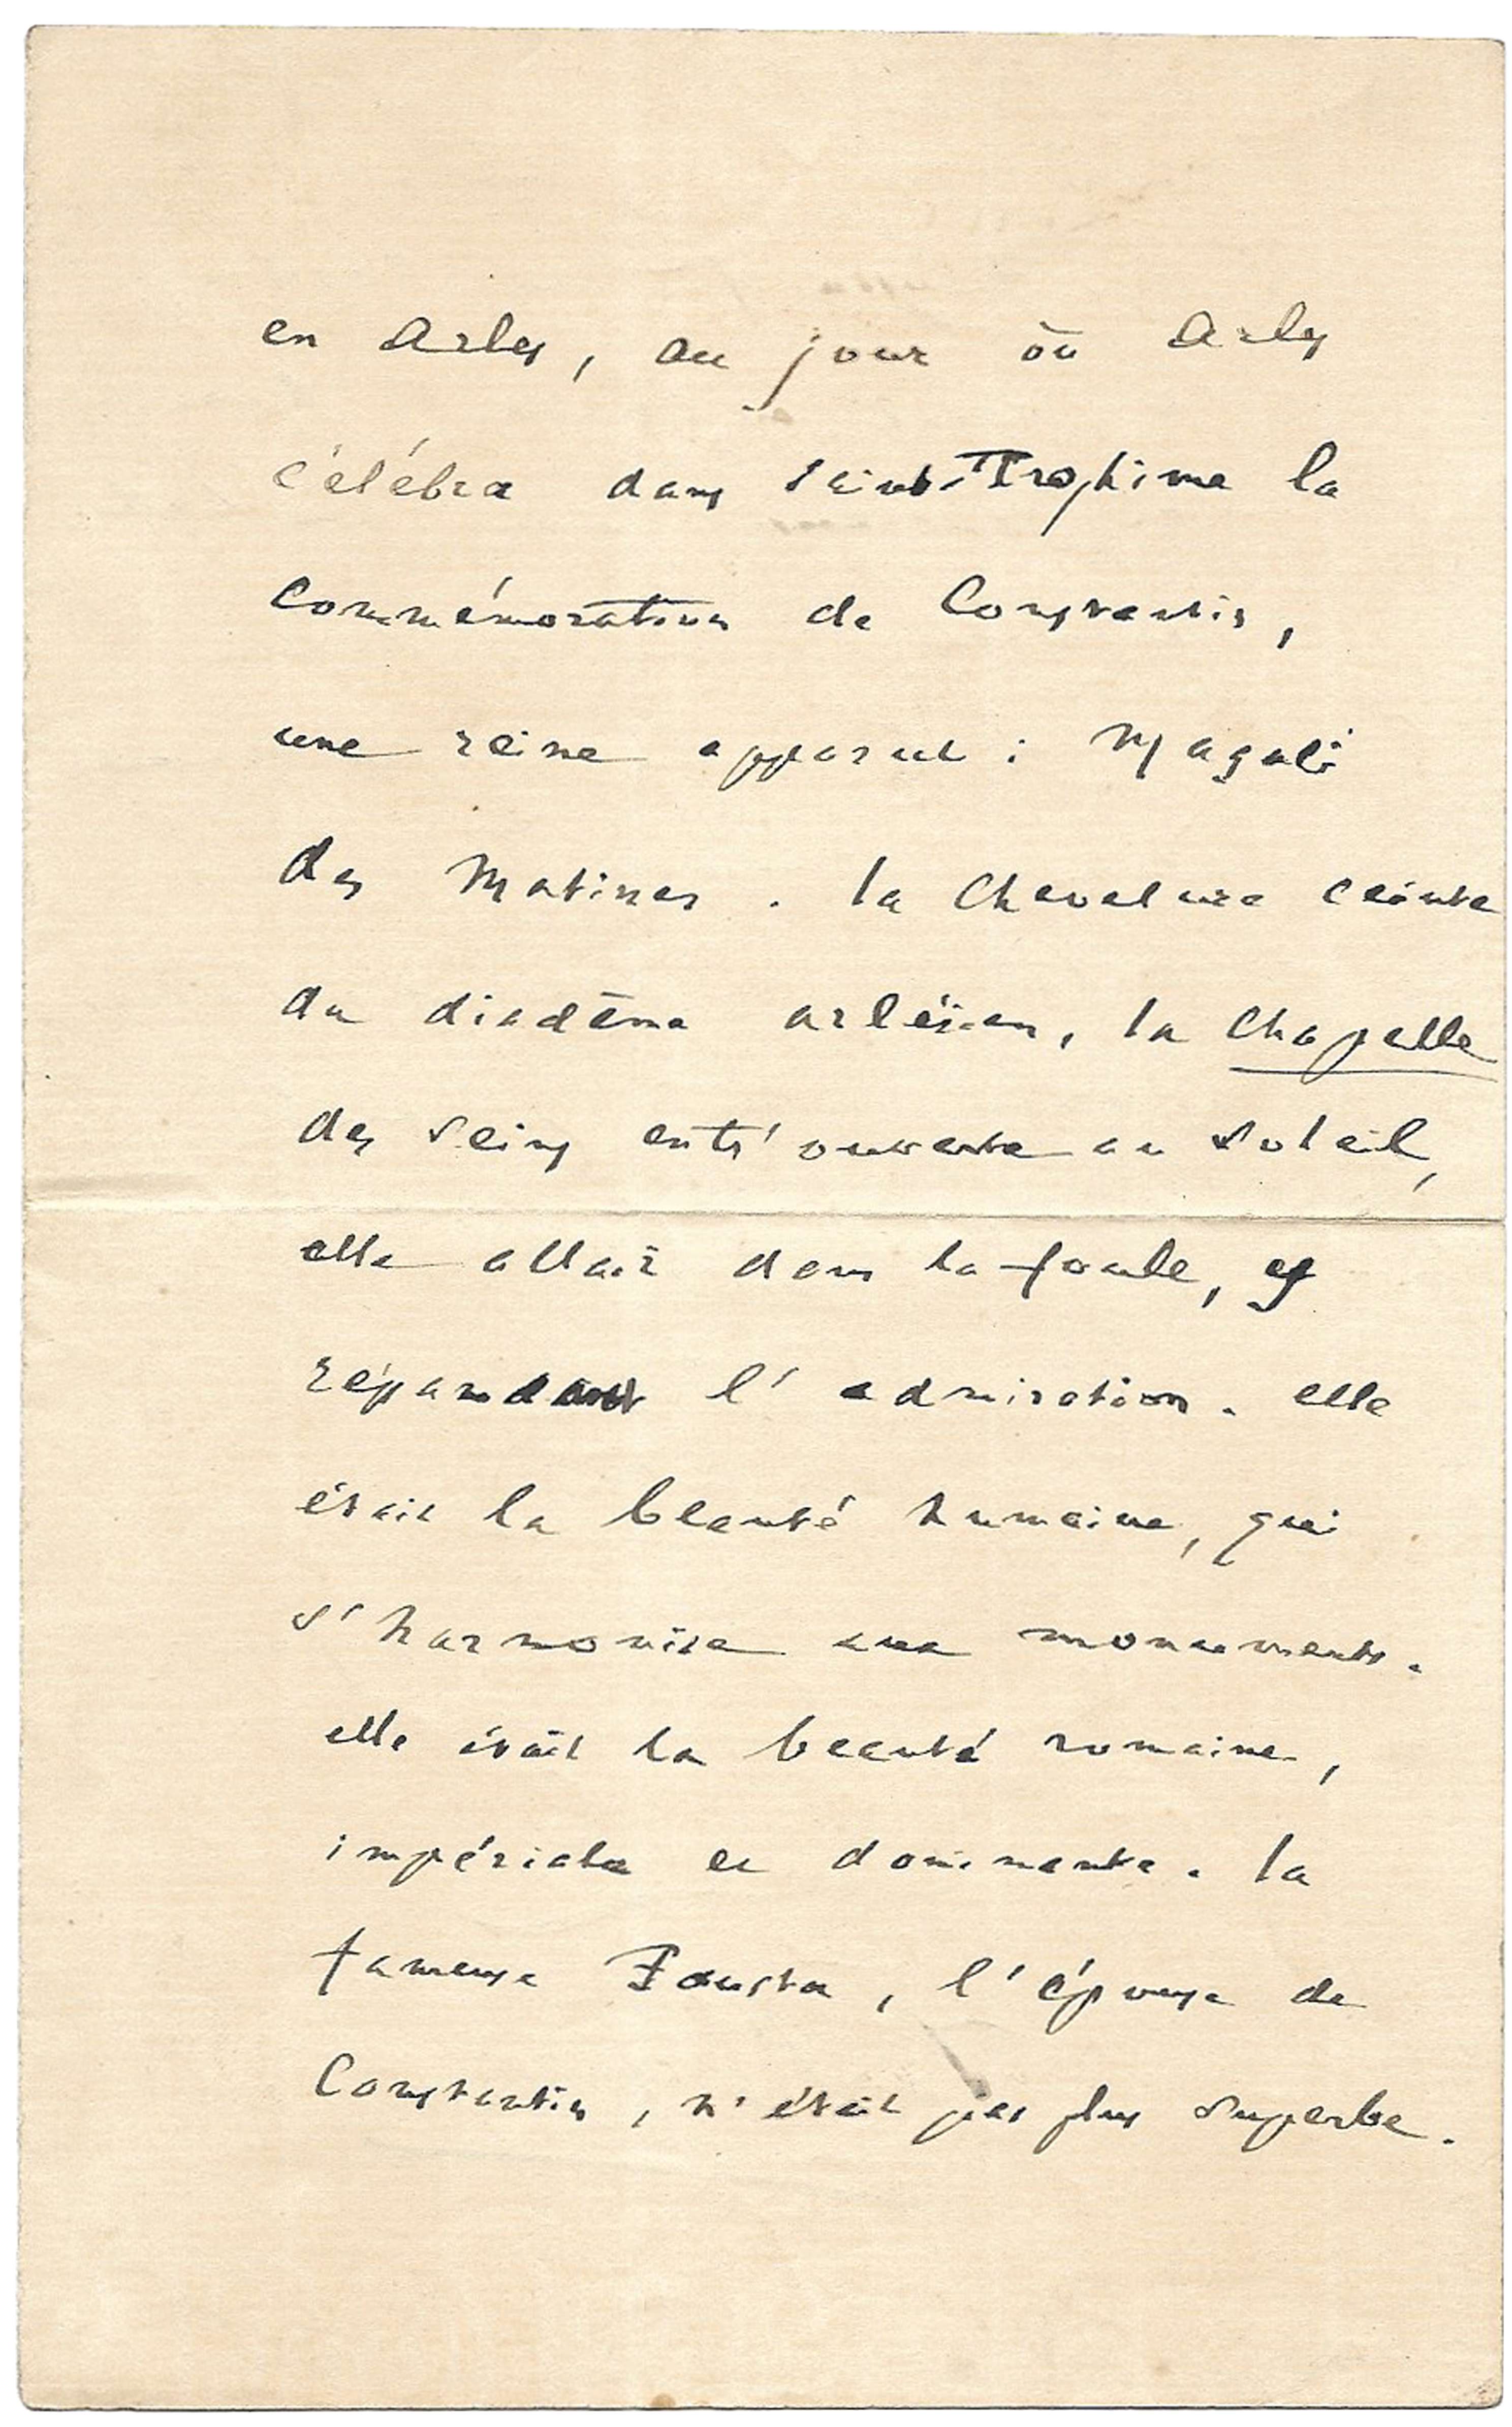 en Arles, au jour où Arles
célébra dans Saint-Trophime la
commémoration de Constantin,
une reine apparut : Magali
des Matines. la chevelure ceinte
du diadème arlésien, la chapelle
des seins entr'ouverte au soleil,
elle allait dans la foule,
répandant l'admiration. elle
était la beauté humaine, qui
s'harmonise aux monuments.
elle était la beauté romaine,
impériale et dominante. la
fameuse Fausta, l'épouse de
Constantin, n'était pas plus superbe.